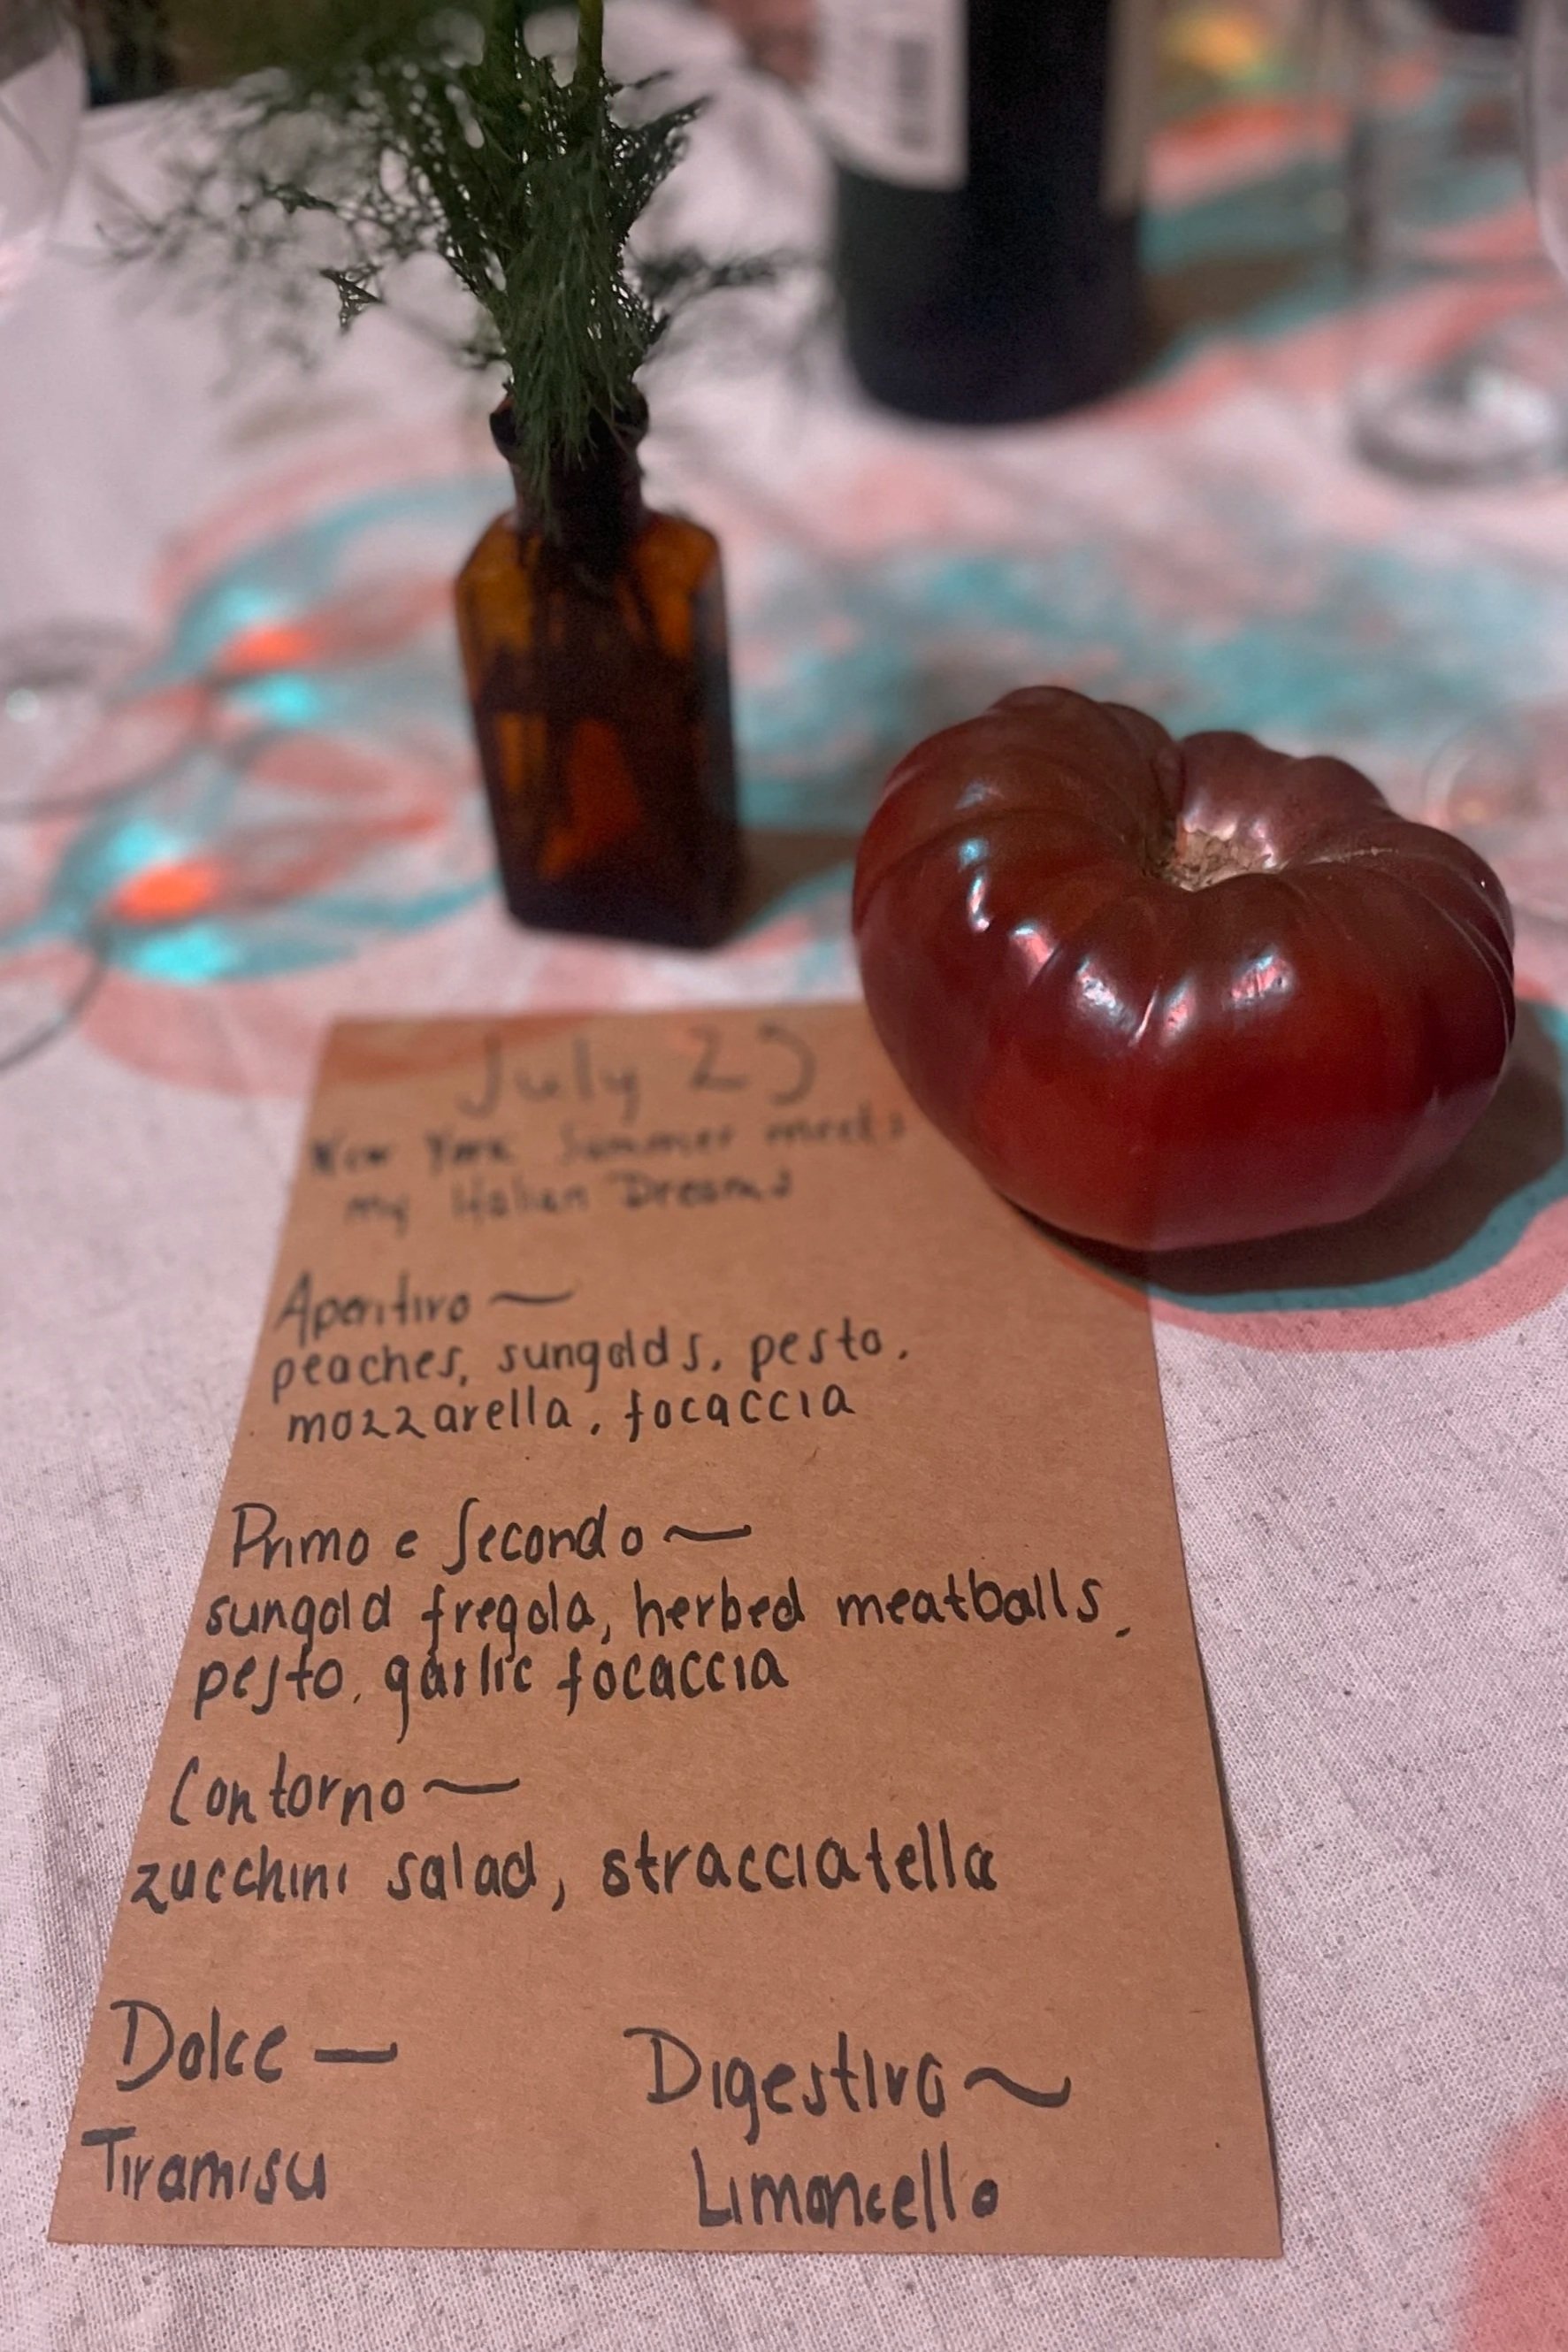 July 25
New York Summer meets
my Italian Dreams
Aperitivo ~
peaches, sungolds, pesto,
mozzarella, focaccia
Primo e Secondo ~
sungold fregola, herbed meatballs,
pesto, garlic focaccia
Contorno ~
zucchini salad, stracciatella
Dolce —
Tiramisu
Digestivo ~
Limoncello